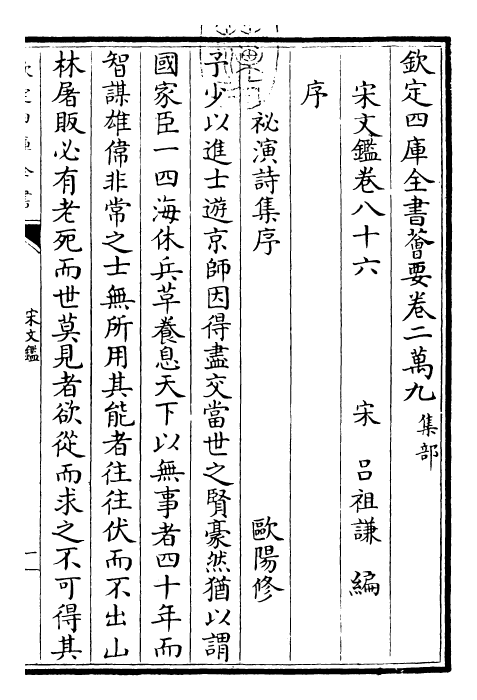 欽定四庫全書薈要卷二萬九 集部
宋文鑑卷八十六 宋 呂祖謙 編
序
祕演詩集序 歐陽修
予少以進士遊京師因得盡交當世之賢豪然猶以謂
國家臣一四海休兵革養息天下以無事者四十年而
智謀雄偉非常之士無所用其能者往往伏而不出山
林屠販必有老死而世莫見者欲從而求之不可得其
欽定四庫全書
宋文鑑
一